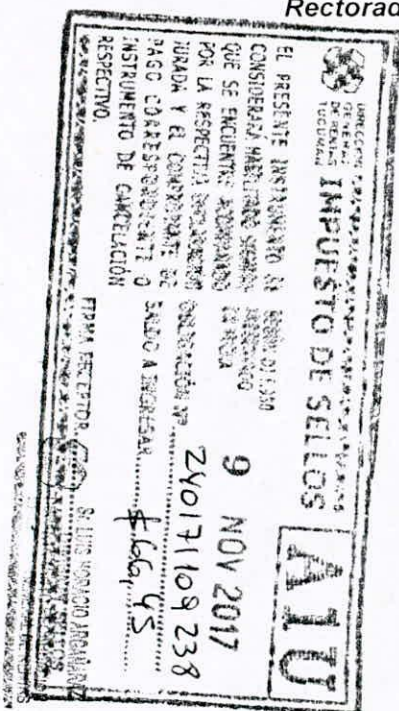 Rectorad
DIRECCION
GENERAL
DE RENTAS
TUCUMAN
IMPUESTO DE SELLOS
A1U
EL PRESENTE INSTRUMENTO SE
CONSIDERARÁ HABILITADO
QUE SE ENCUENTRE ACOMPAÑADO
POR LA RESPECTIVA DECLARACION
JURADA Y EL COMPROBANTE DE
PAGO CORRESPONDIENTE O
INSTRUMENTO DE CANCELACIÓN
RESPECTIVO.
9 NOV 2017
OBLIGACIÓN Nº 240171109238
SALDO A INGRESAR $66,45
FIRMA RECEPTOR